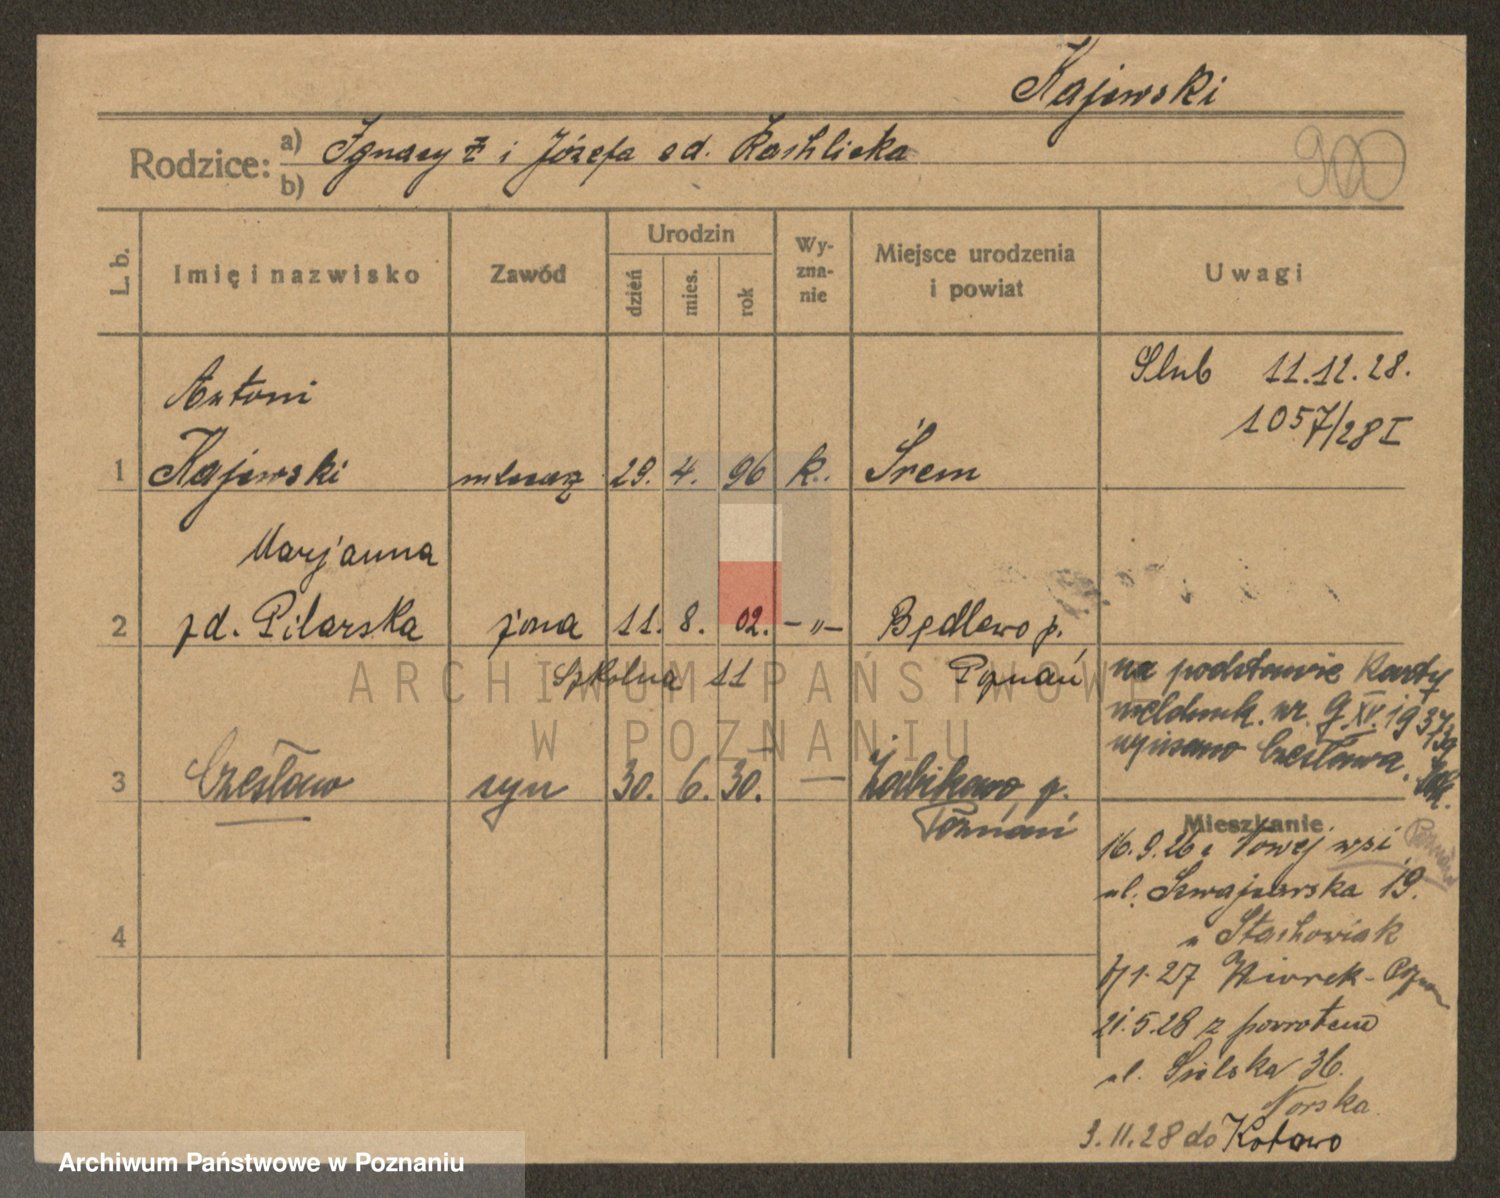 Kajewski
Rodzice: a) Ignacy i Józefa
b)
900
L. b.
Imię i nazwisko
Zawód
Urodzin
dzień
mies.
rok
Wy-
zna-
nie
Miejsce urodzenia
i powiat
Uwagi
Ślub 11.12.28.
1057/28 I
Antoni
1 Kajewski mlecarz 29. 4. 96 k. Śrem
Marjanna
2 zd. Pilarska żona 11. 8. 02. -"- Będlewo p.
Szkolna 11 Poznań
na podstawie karty
meldunk. nr. 9 XV. 1937/39
wpisano Czesława.
3 Czesław syn 30. 6. 30. — Żabikowo, p.
Poznań
Mieszkanie
16.9.26 z Nowej wsi Poznań
ul. Szwajcarska 19.
u Stachowiak
1.27 Wiorek - Pozn
21.5.28 z powrotem
ul. Sielska 36.
Norska
3.11.28 do Kotowo
4
ARCHIWUM PAŃSTWOWE
W POZNANIU
Archiwum Państwowe w Poznaniu